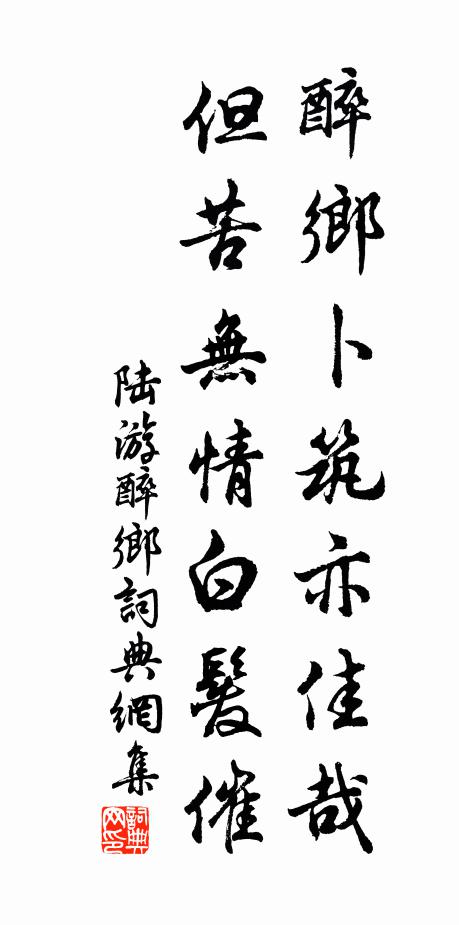 醉鄉卜筑亦佳哉
但苦無情白髮催
陆游醉鄉詞典網集
詞典网印